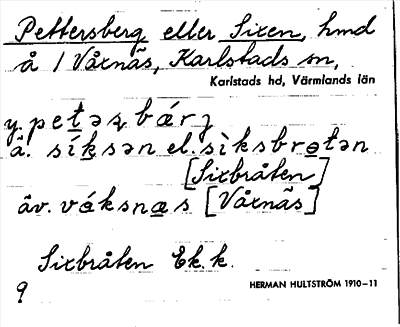 Pettersberg eller Sixen, hmd
å 1 Våxnäs, Karlstads sn,
Karlstads hd, Värmlands län
y. petəʂbárj
ä. síksən el. sìksbrɵtən
[Sixbråten]
äv. váksnas [Våxnäs]
Sixbråten Ek. k.
9
HERMAN HULTSTRÖM 1910–11